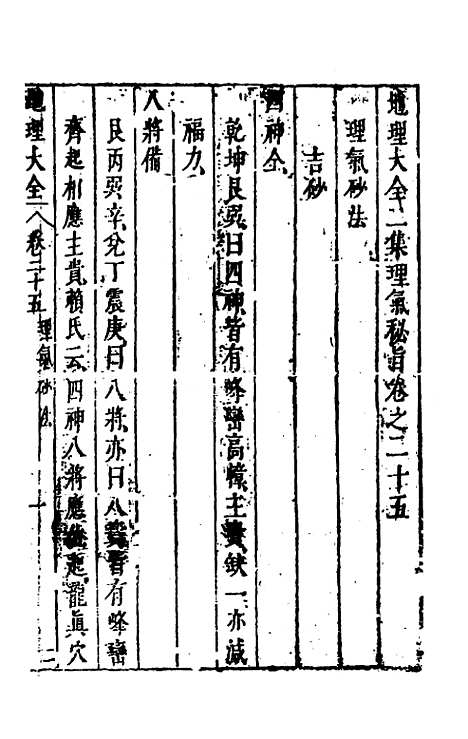 地理大全二集理氣秘旨卷之二十五
理氣砂法
吉砂
四神全
乾坤艮巽曰四神皆有峰巒高幃主貴缺一亦減
福力
八將備
艮丙巽辛兌丁震庚曰八將亦曰八貴皆有峰巒
齊起相應主貴賴氏云四神八將應起龍眞穴
地理大全 卷二十五 理氣砂法 一